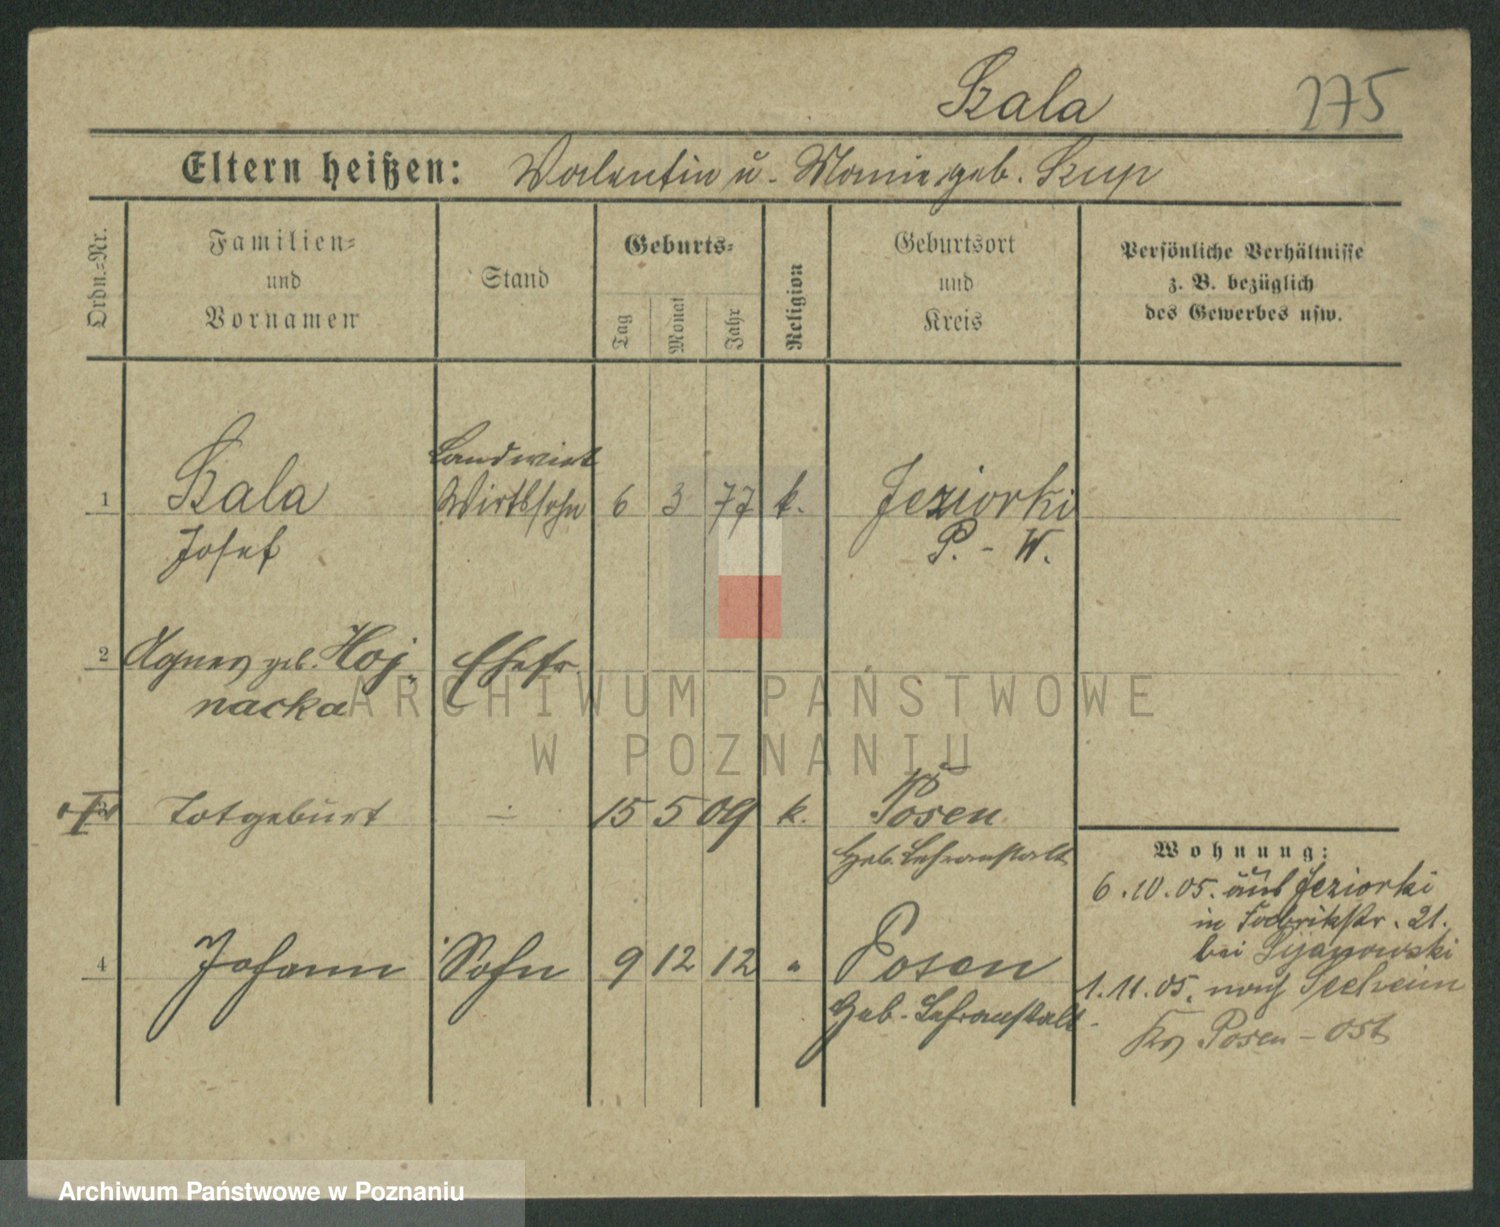 Szala 275
Eltern heißen: Valentin u. Marie geb. Szup
Ordn.=Nr.
Familien=
und
Vornamen
Stand
Geburts=
Tag
Monat
Jahr
Religion
Geburtsort
und
Kreis
Persönliche Verhältnisse
z. B. bezüglich
des Gewerbes usw.
Landwirt
1 Szala Wirtssohn 6 3 77 k. Jeziorki
Josef P. - W.
2 Agnes geb. Hoj- Ehefr.
nacka
ARCHIWUM PAŃSTWOWE
W POZNANIU
Totgeburt - 15 5 09 k. Posen
Geb. Lehranstalt
Wohnung:
6.10.05. aus Jeziorki
in Fabrikstr. 21.
bei
4 Johann Sohn 9 12 12 " Posen
Geb. Lehranstalt
1.11.05. nach Seeheim
Krs Posen - Ost
Archiwum Państwowe w Poznaniu